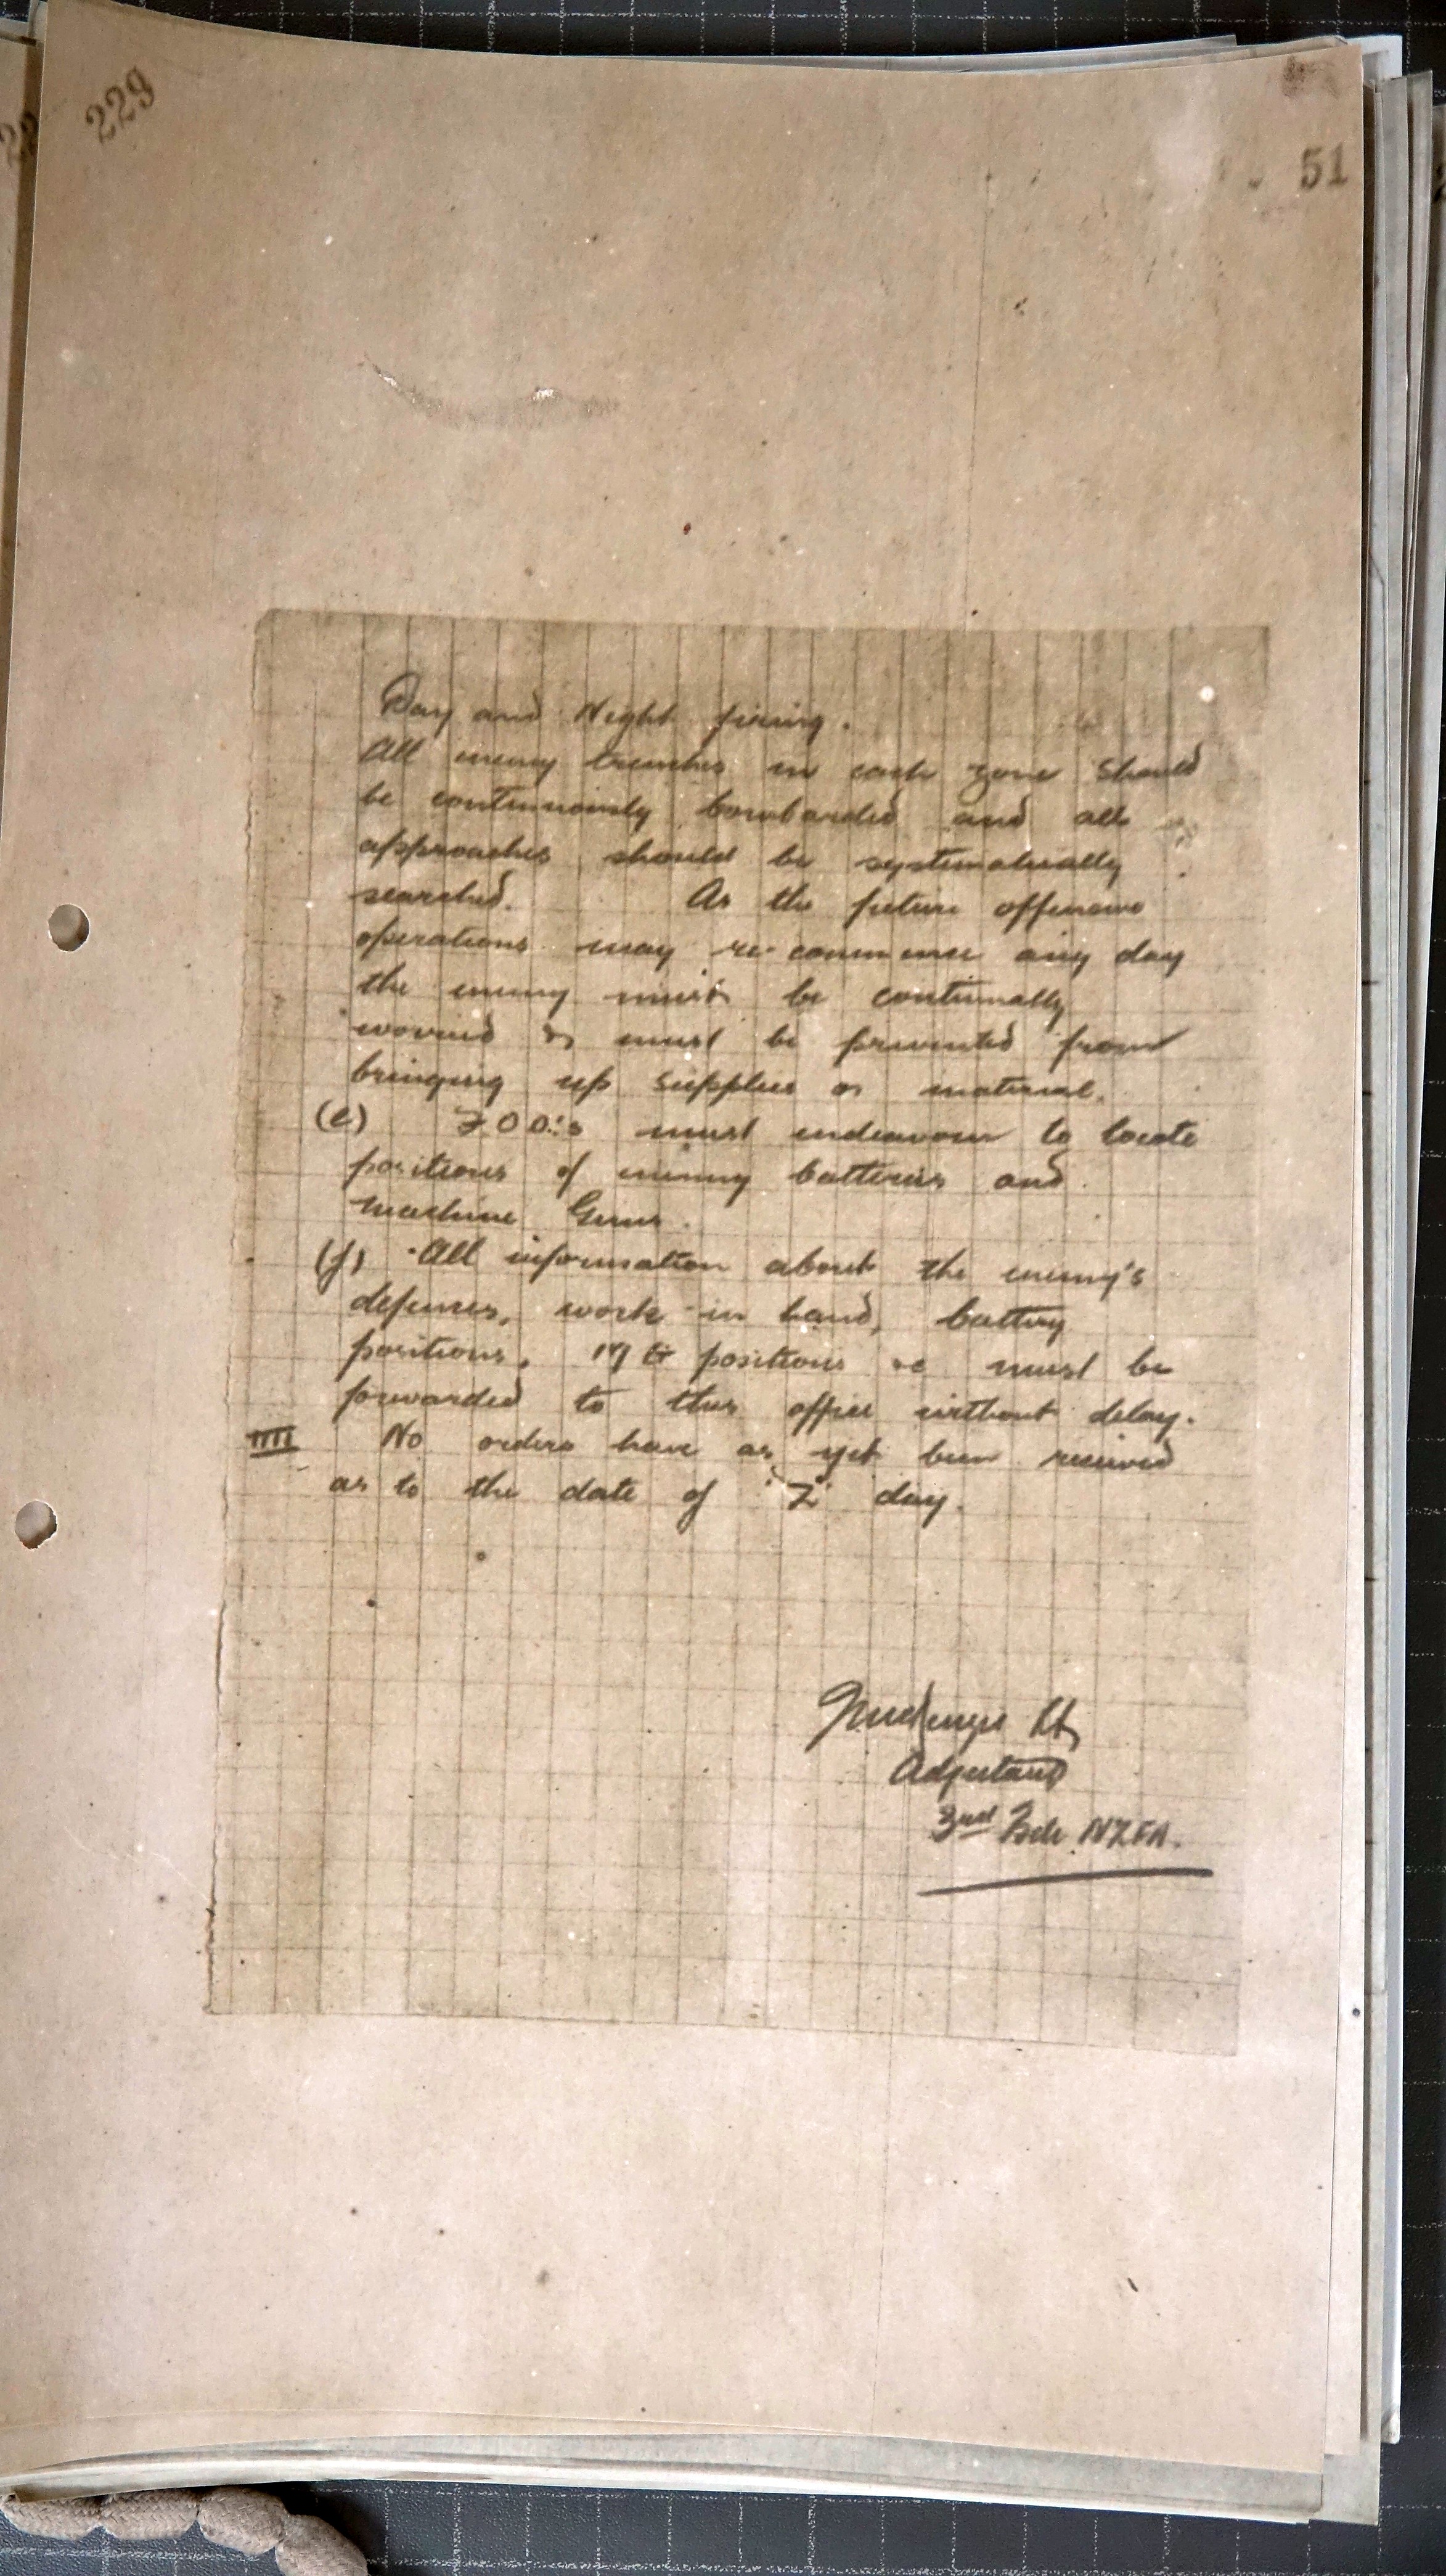 229
51
Day and Night firing.
All enemy trenches in each zone should
be continuously bombarded and all
approaches should be systematically
searched. As the future offensive
operations may re-commence any day
the enemy must be continually
worried & must be prevented from
bringing up supplies or material.
(e) F.O.O.'s must endeavour to locate
positions of enemy batteries and
Machine Guns.
(f) All information about the enemy's
defences, work in hand, battery
positions, MG positions &c must be
forwarded to this office without delay.
IIII No orders have as yet been received
as to the date of 'Z' day.
Lt
Adjutant
3rd Bde NZFA.